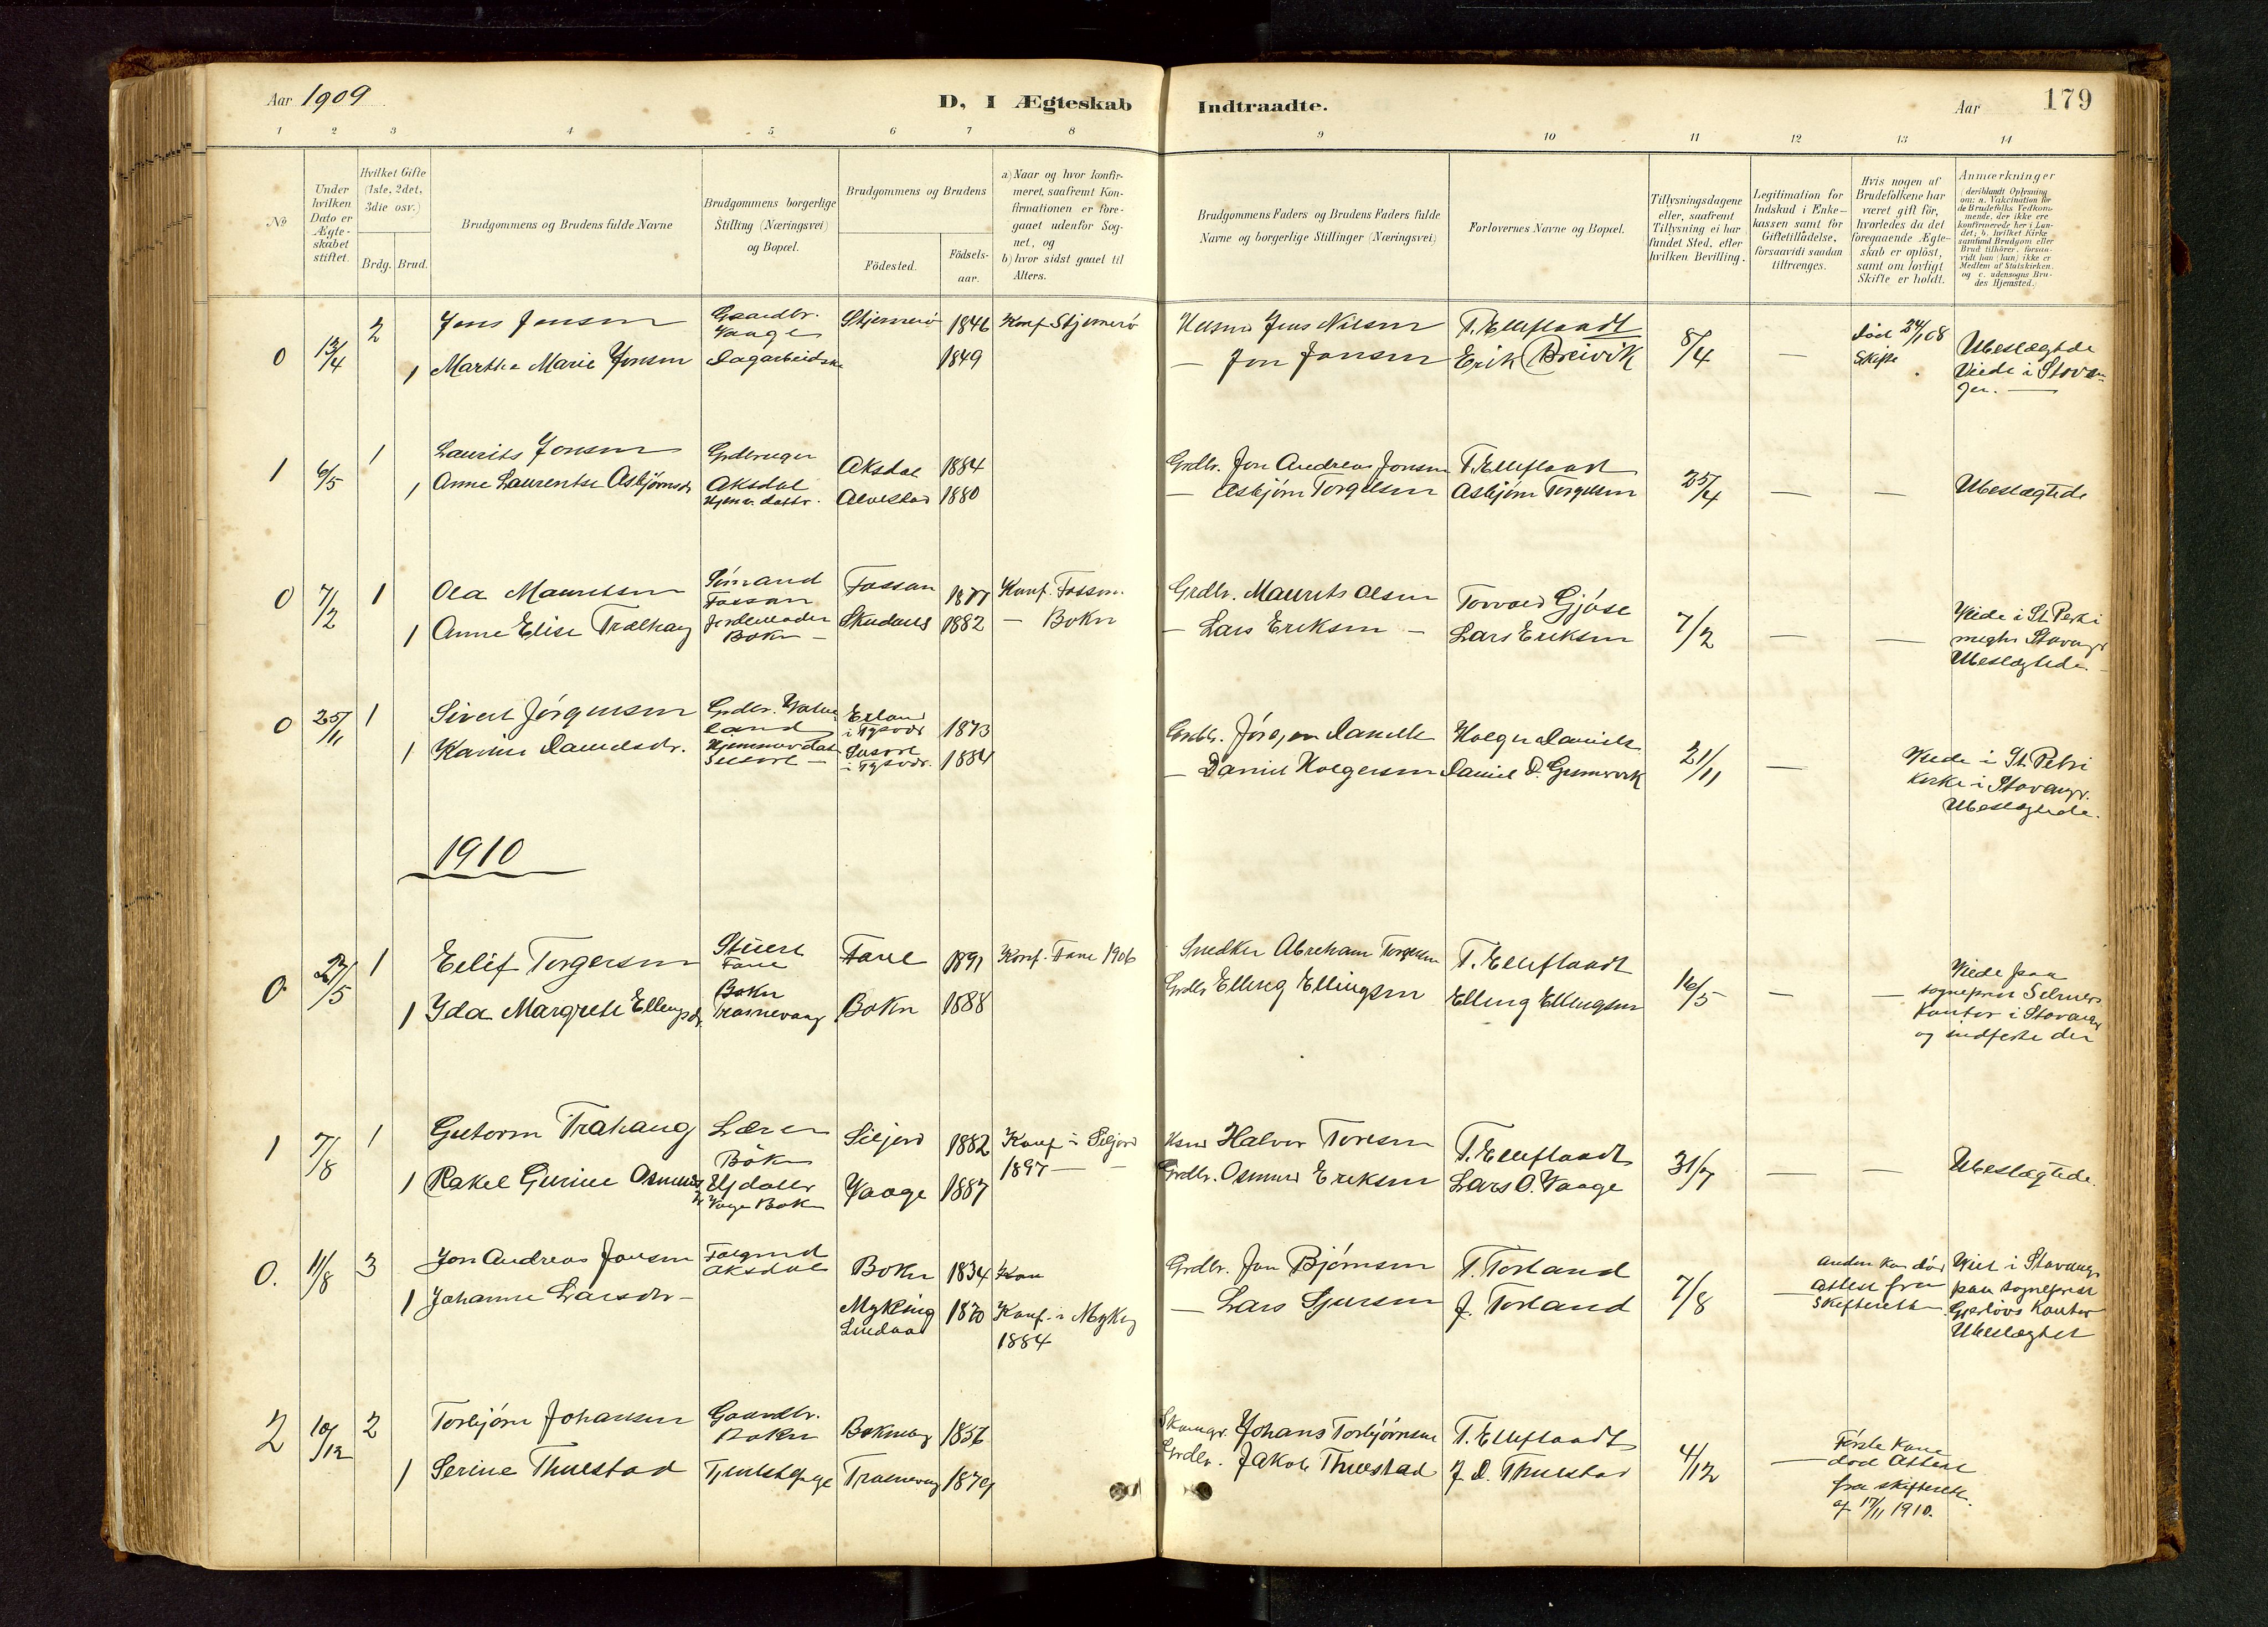 Aar 1909
D, I Ægteskab
Indtraadte.
Aar
179
1 2 3 4 5 6 7 8
9 10 11 12 13 14
No
Under hvilken Dato er Ægteskabet stiftet.
Hvilket Gifte (1ste, 2det, 3die osv.)
Brdg. Brud.
Brudgommens og Brudens fulde Navne
Brudgommens borgerlige Stilling (Næringsvei) og Bopæl.
Brudgommens og Brudens
Födested.
Födselsaar.
a) Naar og hvor konfirmeret, saafremt Konfirmationen er foregaaet udenfor Sognet, og
b) hvor sidst gaaet til Alters.
Brudgommens Faders og Brudens Faders fulde Navne og borgerlige Stillinger (Næringsvei)
Forlovernes Navne og Bopæl.
Tillysningsdagene eller, saafremt Tillysning ei har fundet Sted, efter hvilken Bevilling.
Legitimation for Indskud i Enkekassen samt for Giftetilladelse, forsaavidt saadan tiltrænges.
Hvis nogen af Brudefolkene har været gift för, hvorledes da det foregaaende Ægteskab er oplöst, samt om lovligt Skifte er holdt.
Anmærkninger (deriblandt Oplysning om: a. Vakcination for de Brudefolks Vedkommende, der ikke ere konfirmerede her i Landet; b. hvilket Kirkesamfund Brudgom eller Brud tilhörer, forsaavidt han (hun) ikke er Medlem af Statskirken, og c. udensogns Brudes Hjemsted.)
0 13/4 2 Jens Jensen Gaardbr. Vaage Stjernerö 1846 Konf. Stjernerö
1 Marthe Marie Jonsen Dagarbeidske 1849
Husmd Jens Nilsen T. Elleflaadt 8/4 — død 24/1 08 Skifte Ubeslægtede
— Jon Jonsen Erik Breivik Viede i Stavanger. —
1 6/5 1 Laurits Jonsen Grdbruger Aksdal Aksdal 1884
1 Anne Laurentse Asbjørnsdr Hjemv. dattr. Alvestad 1880
Grdbr. Jon Andreas Jonsen T. Elleflaadt 25/4 — — Ubeslægtede
— Asbjørn Torgilsen Asbjørn Torgilsen
0 7/2 1 Ola Mauritsen Sömand Fossan Fossan 1877 Konf. Fossan
1 Anne Elise Trælhaug Bokn — Skudenes 1882 — Bokn
Grdbr. Maurits Olsen Torvald Gjöse 7/2 — — Viede i St. Petri
— Lars Eriksen — Lars Eriksen Stavanger
Ubeslægtede
0 25/11 1 Sivert Jörgensen Grdbr. i Tysvær 1873
1 Karine Danielsdr. i Tysvær. 1884
Grdbr. Holger Daniels. 21/11 — Viede i St. Petri
— Daniel Holgersen Kirke i Stavanger.
Ubeslægtede.
1910
0. 27/5 1 Eilif Torgersen Fane Fane 1891 Konf. Fane 1906
1 Ida Margrete Ellingsdr. Bokn Trosnevaag Bokn 1888
Snedker Abraham Torgersen T. Elleflaadt 16/5 — — Viede paa
Grdbr Elling Ellingsen Elling Ellingsen sogneprest
Kontor i Stavanger
og indførte der
1 7/8 1 Gutorm Træhaug Lærer Bokn Siljord 1882 Konf. i Siljord
1897 —
1 Rakel Gurine Osmundsdr Hjdattr Vaage Bokn Vaage 1887
Halvor Toresen T. Elleflaadt 31/7 — — Ubeslægtede.
Grdbr. Osmund Eriksen Lars O. Vaage
0. 11/8 3 Jon Andreas Jonsen Aksdal Bokn 1834
1 Johanne Larsdr — Mykling Lindaas 1870 Konf. i Mykling
1884
Grdbr. Jon Bjørnsen T. Torland 7/8 Anden kone död Viet i Stavanger
— Lars Sjursen J. Torland Attest fra Skifteretten paa sogneprest
Kontor
Ubeslægtet
2 10/12 2 Torbjörn Johansen Gaardbr. Bokn 1856
1 Serine Thuestad 1879
Johans Torbjörnsen T. Elleflaadt 4/12 — Förste Kone
Grdbr. Jakob Thuestad J. D. Thuestad död Attest
fra skifterett.
af 17/11 1910.